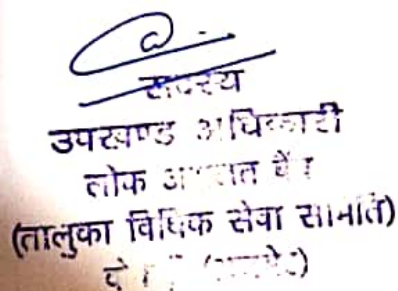 सदस्य
उपखण्ड अधिकारी
लोक अदालत बैंच
(तालुका विधिक सेवा समिति)